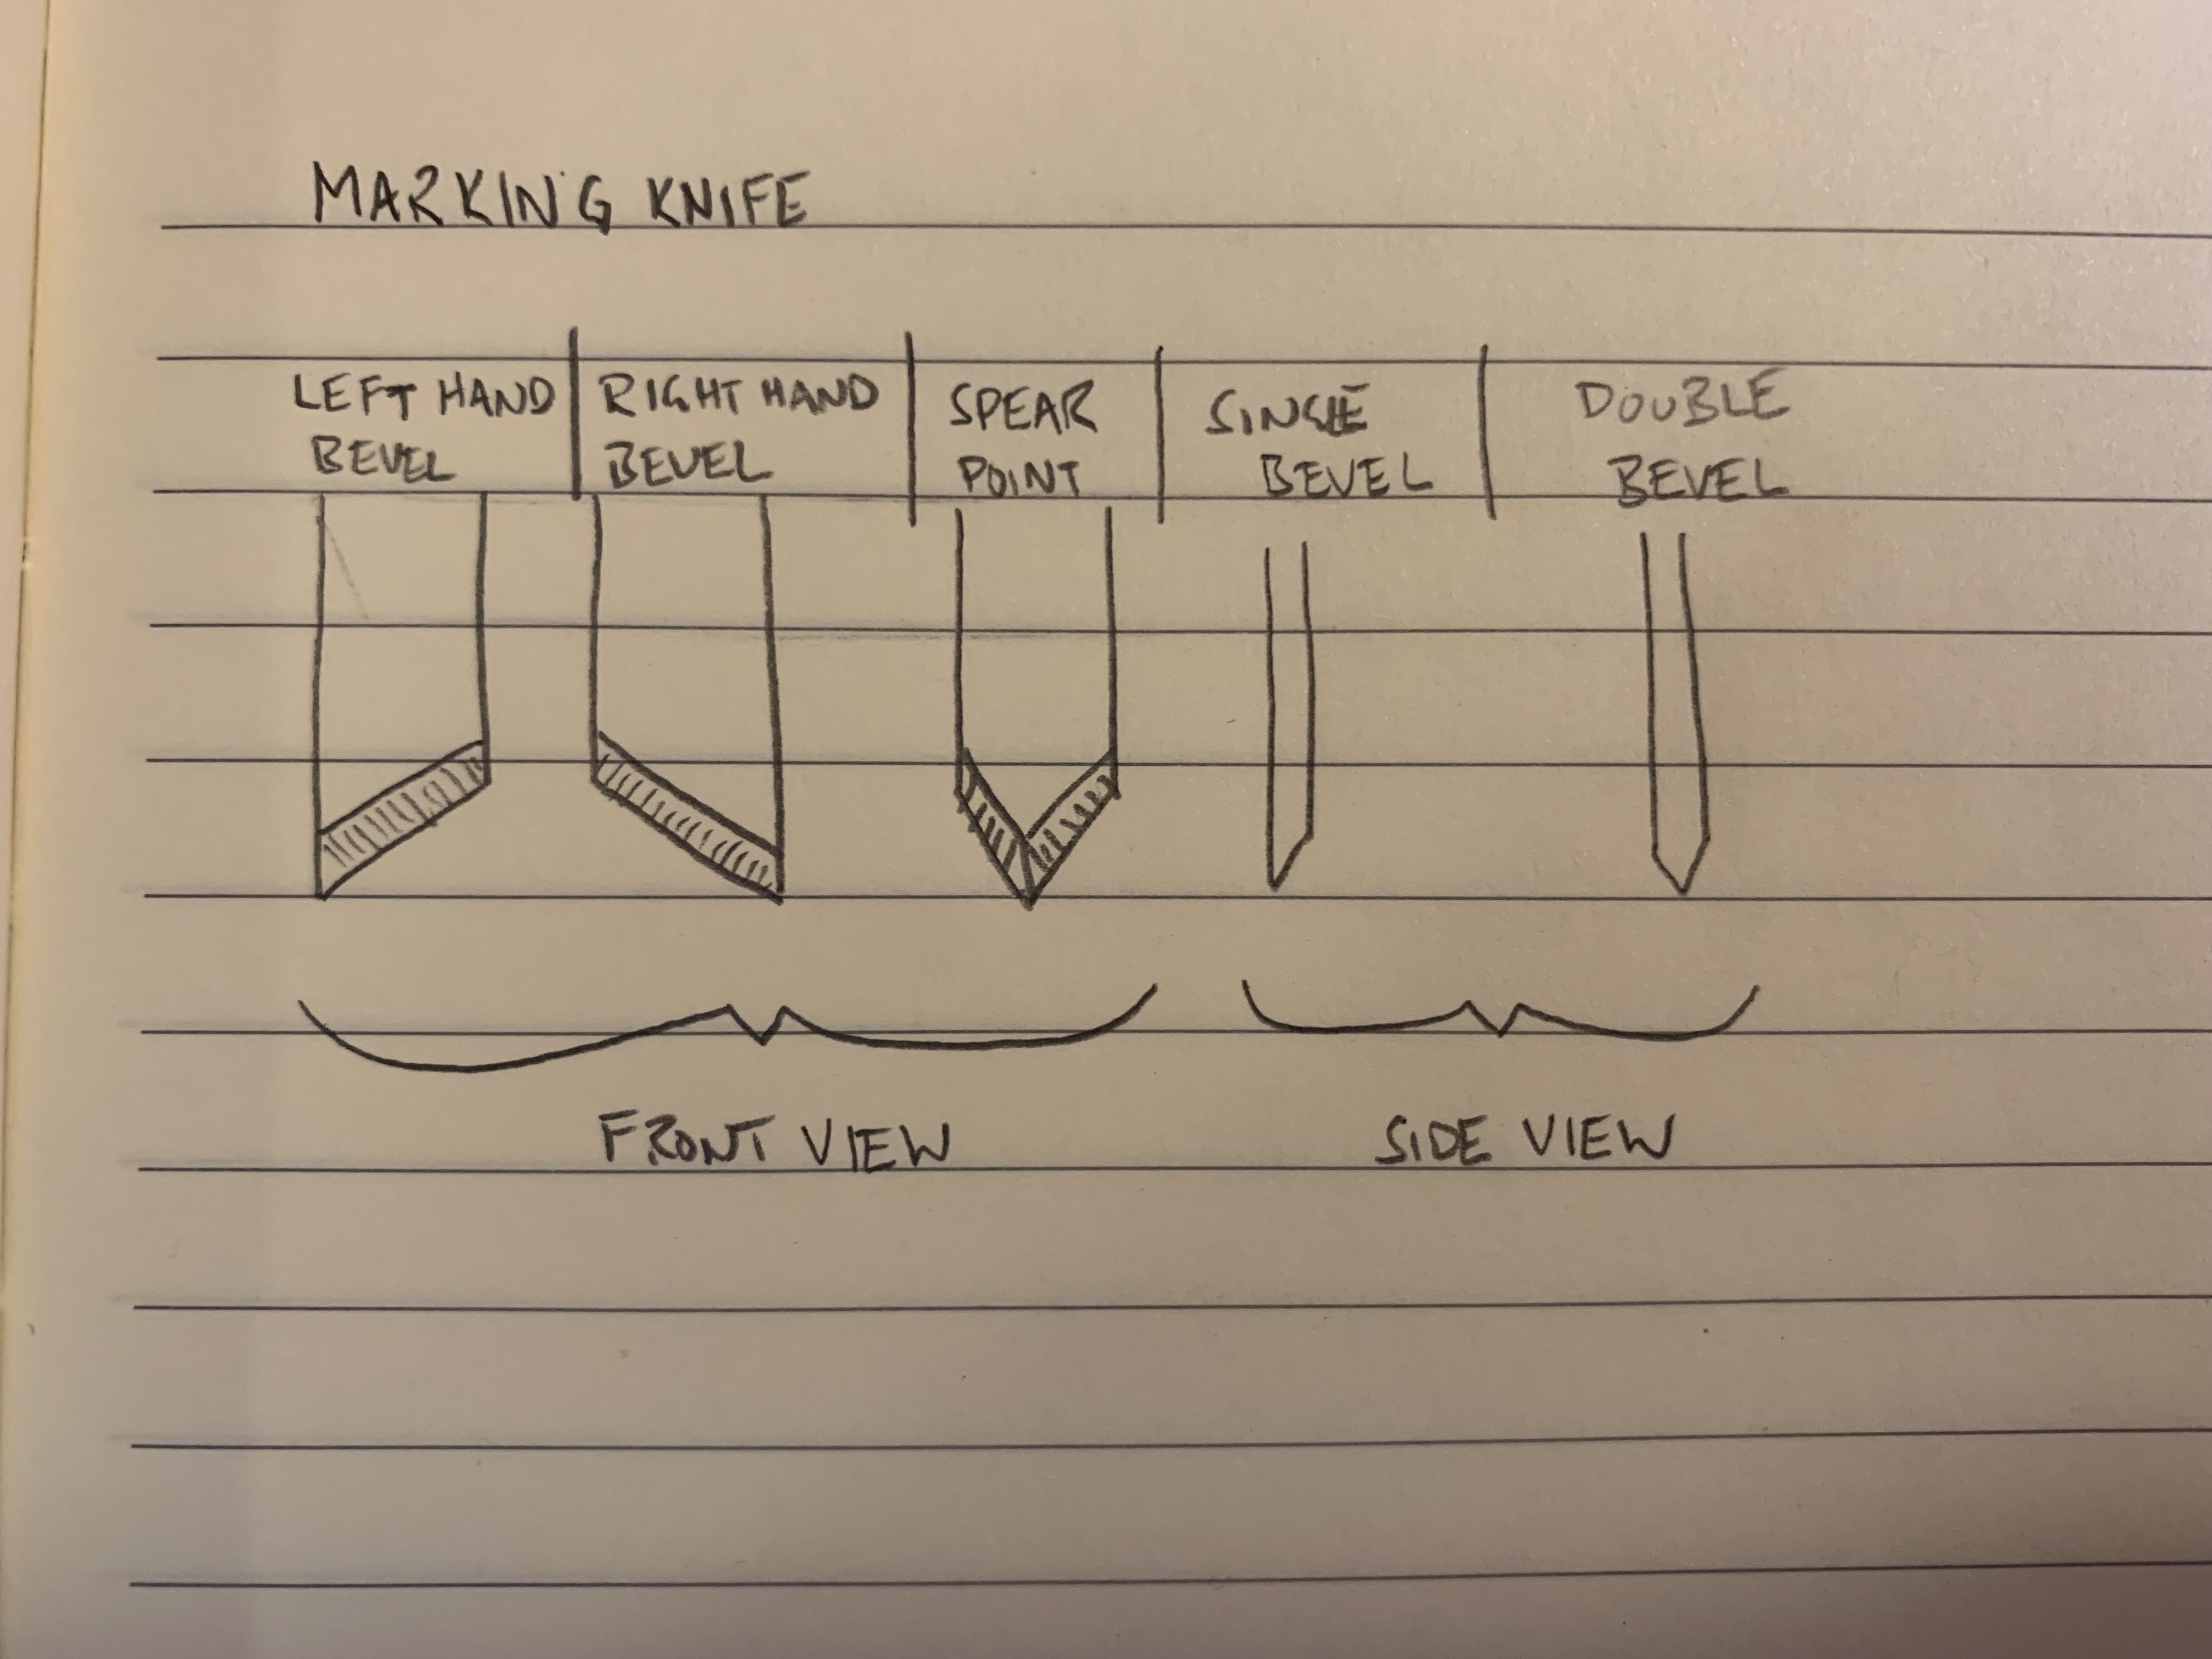 MARKING KNIFE
LEFT HAND
BEVEL
RIGHT HAND
BEVEL
SPEAR
POINT
SINGLE
BEVEL
DOUBLE
BEVEL
FRONT VIEW
SIDE VIEW